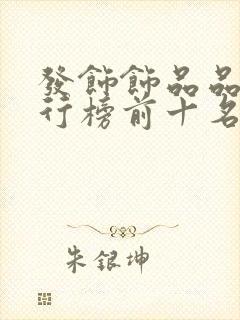 發飾飾品品
行榜前十名
朱銀坤